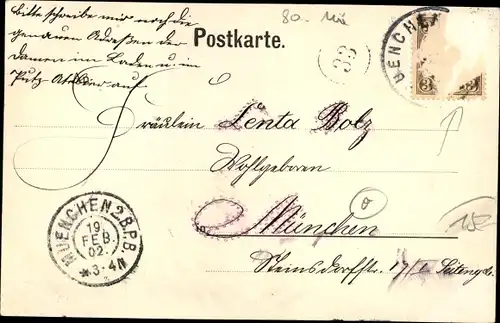 Bitte schreibe mir noch die
genauen Adreßen der
Damen im Laden u. im
Putz-Atelier auf
80.-
Postkarte.
33
MUENCHEN
3
3
Fräulein Zenta Bolz
Wohlgeboren
in München
Steinsdorfstr. 17/I Seitengb.
MUENCHEN 2 B.P.B.
19
FEB.
02.
*3-4N
150